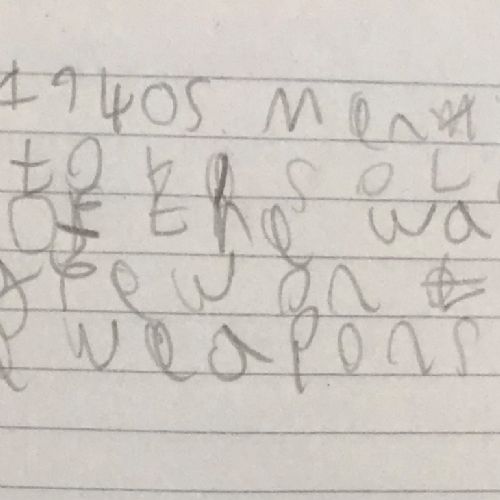 1940s Men
to the sol
Of the wa
grew on
weapons